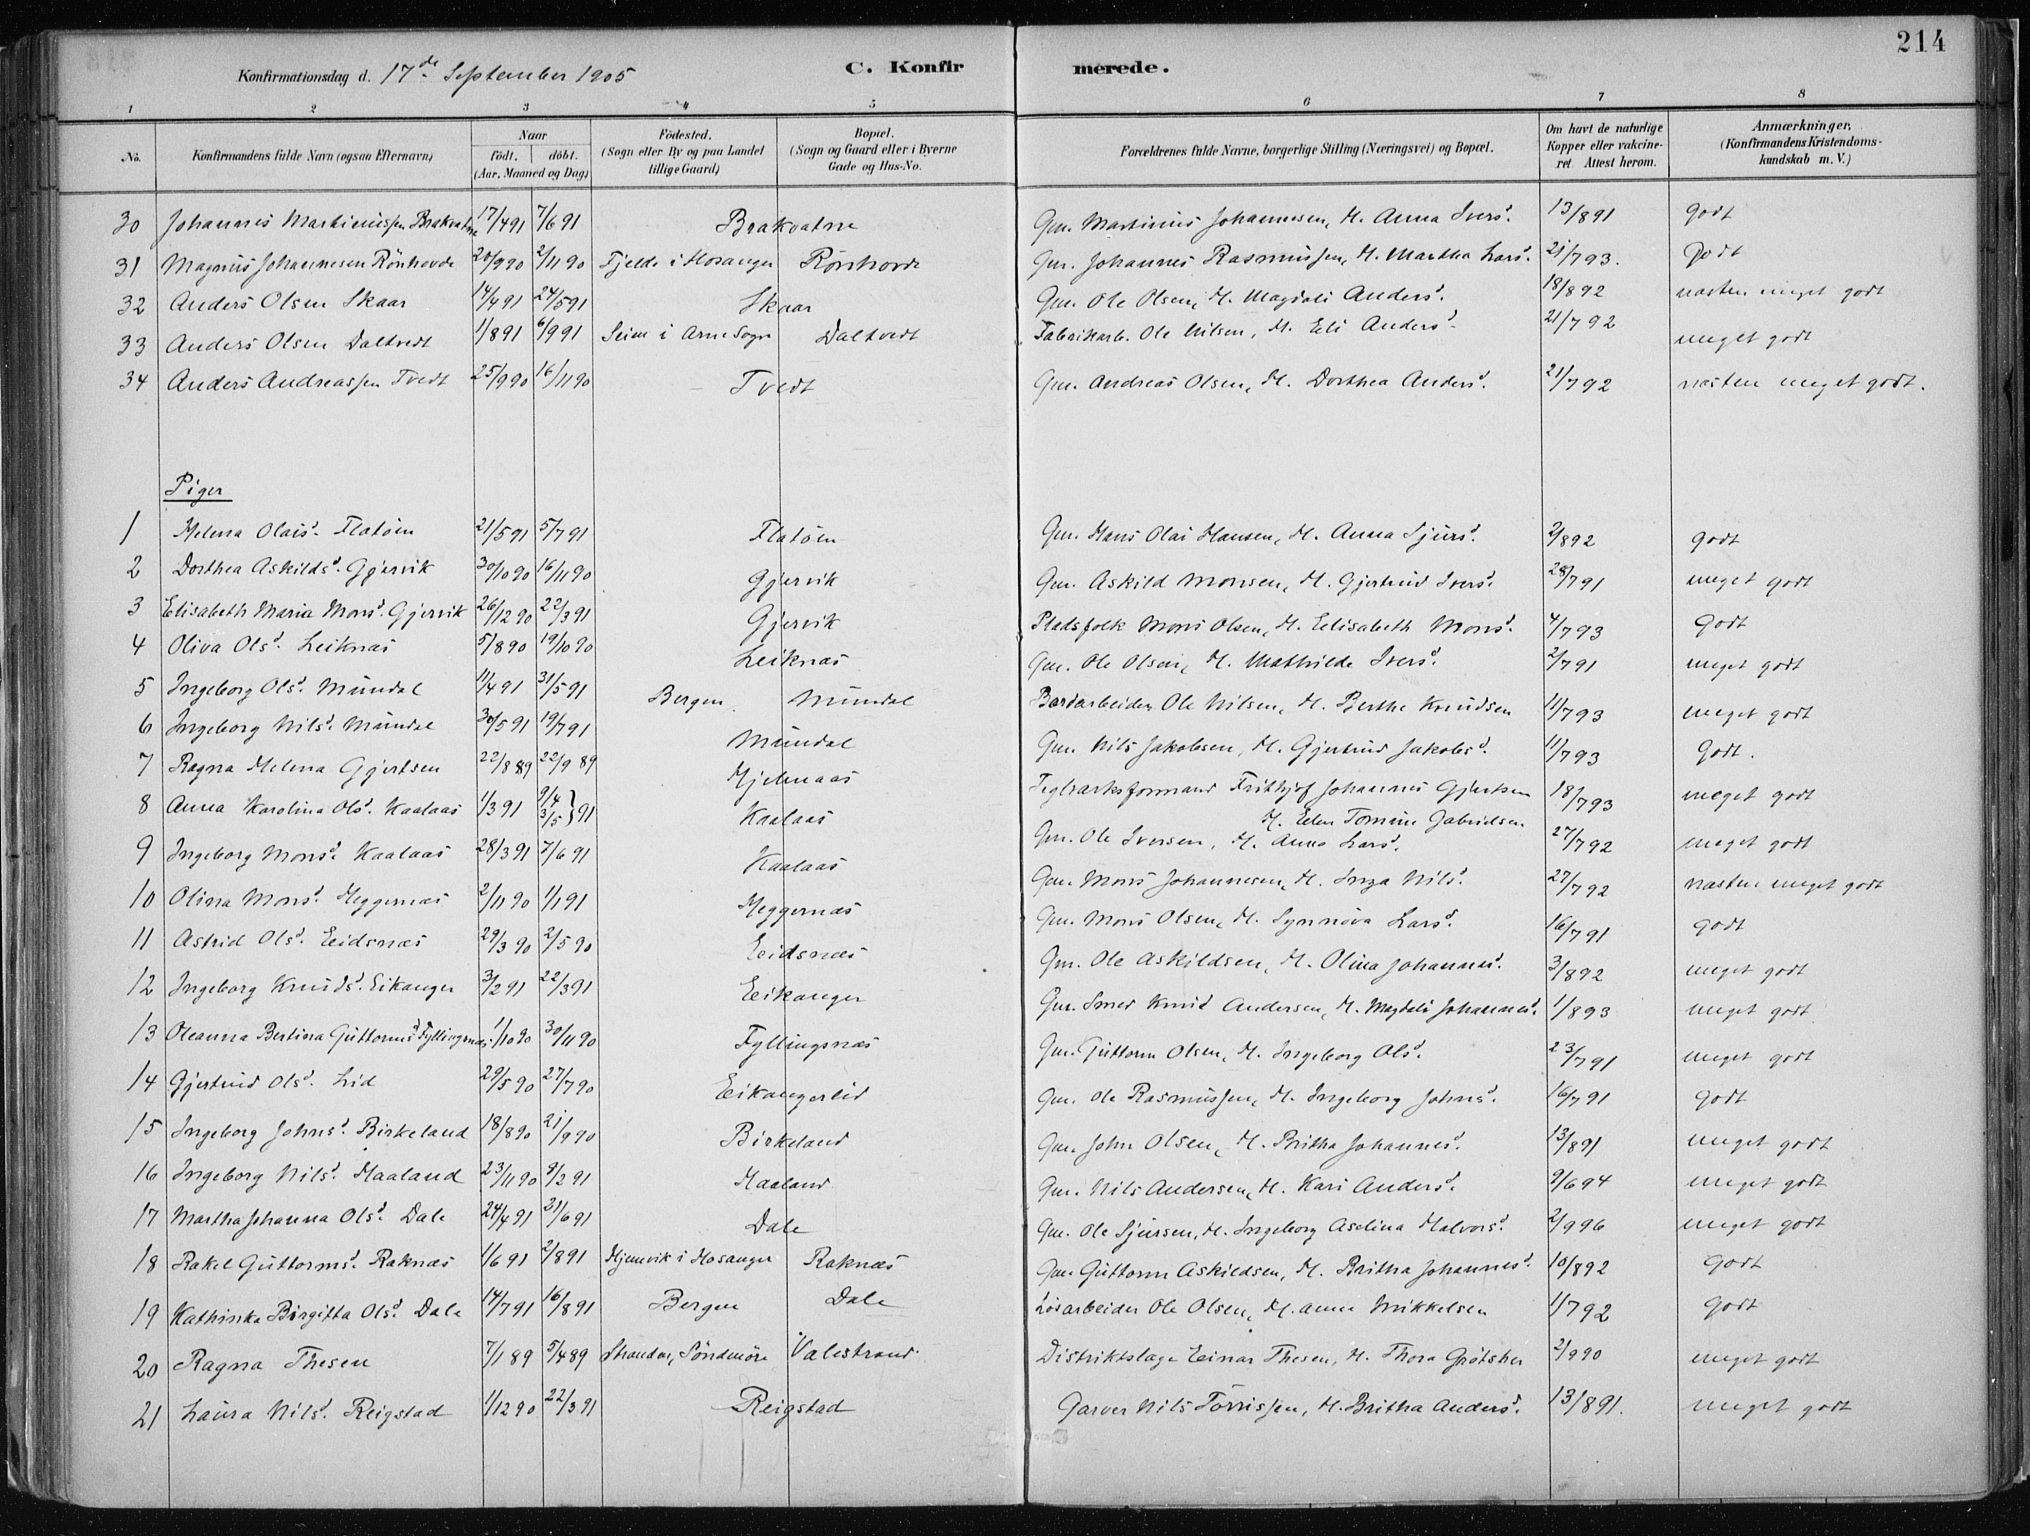 214
Konfirmationsdag d. 17de September 1905 C. Konfirmerede.
1 2 3 4 5 6 7 8
No. Konfirmandens fulde Navn (ogsaa Efternavn) Naar født. døbt. (Aar, Maaned og Dag) Födested. (Sogn eller By og paa Landet tillige Gaard) Bopæl. (Sogn og Gaard eller i Byerne Gade og Hus-No. Forældrenes fulde Navne, borgerlige Stilling (Næringsvei) og Bopæl. Om havt de naturlige Kopper eller vakcineret Attest herom. Anmærkninger, (Konfirmandens Kristendomskundskab m. V.)
30 Johannes Martinussen Brakvatne 17/4 91 7/6 91 Brakvatne Gm. Martinus Johannesen, H. Anna Ivers d. 13/8 91 godt
31 Magnus Johannesen Rönhovde 20/9 90 2/11 90 Fjelde i Hosanger Rönhovde Gm. Johannes Rasmussen, H. Martha Lars d. 21/7 93. godt
32 Anders Olsen Skaar 14/4 91 24/5 91 Skaar Gm. Ole Olsen, H. Magdali Anders d. 18/8 92 næsten meget godt
33 Anders Olsen Daltvedt 1/8 91 6/9 91 Seim i Arne Sogn Daltvedt Fabrikarb. Ole Nilsen, H. Eli Anders d. 21/7 92 meget godt
34 Anders Andreassen Tvedt 25/9 90 16/11 90 Tvedt Gm. Andreas Olsen, H. Dorthea Anders d. 21/7 92 næsten meget godt.
Piger
1 Helena Olais d. Flatöen 21/5 91 5/7 91 Flatöen Gm. Hans Olai Hansen, H. Anna Sjurs d. 2/8 92 godt
2 Dorthea Askilds d. Gjervik 30/10 90 16/11 90 Gjervik Gm. Askild Monsen, H. Gjertrud Ivers d. 28/7 91 meget godt
3 Elisabeth Maria Mons d. Gjervik 26/12 90 22/3 91 Gjervik Pladsfolk Mons Olsen, H. Elisabeth Mons d. 4/7 93 godt
4 Oliva Ols d. Leiknæs 5/8 90 19/10 90 Leiknæs Gm. Ole Olsen, H. Mathilde Ivers d. 2/7 91 meget godt
5 Ingeborg Ols d. Mundal 11/4 91 31/5 91 Bergen Mundal Bordarbeider Ole Nilsen, H. Berthe Knudsen 11/7 93 meget godt
6 Ingeborg Nils d. Mundal 30/5 91 19/7 91 Mundal Gm. Nils Jakobsen, H. Gjertrud Jakobs d. 11/7 93 godt.
7 Ragna Helena Gjertsen 22/8 89 22/9 89 Hjelmaas Teglværksformand Frithjof Johannes Gjertsen H. Elen Tomine Gabrielsen 18/7 93 meget godt
8 Anna Karolina Ols d. Kaalaas 1/3 91 9/4 3/5 } 91 Kaalaas Gm. Ole Iversen, H. Anna Lars d. 27/7 92 meget godt
9 Ingeborg Mons d. Kaalaas 28/3 91 7/6 91 Kaalaas Gm. Mons Johannesen, H. Inga Nils d. 27/7 92 næsten meget godt
10 Olina Mons d. Heggernæs 2/11 90 1/1 91 Heggernæs Gm. Mons Olsen, H. Synnöva Lars d. 16/7 91 godt
11 Astrid Ols d. Eidsnæs 29/3 90 2/5 90 Eidsnæs Gm. Ole Askildsen, H. Olina Johannes d. 3/8 92 meget godt
12 Ingeborg Knuds d. Eikanger 3/2 91 22/3 91 Eikanger Gm. Smed Knud Andersen, H. Magdali Johannes d. 1/8 93 meget godt
13 Oleanna Bertina Guttorms d. Fyllingsnæs 1/10 90 30/11 90 Fyllingsnæs Gm. Guttorm Olsen, H. Ingeborg Ols d. 23/7 91 meget godt
14 Gjertrud Ols d. Lid 29/5 90 27/7 90 Eikangerlid Gm. Ole Rasmussen, H. Ingeborg Johns d. 16/7 91 godt
15 Ingeborg Johns d. Birkeland 18/8 90 21/9 90 Birkeland Gm. John Olsen, H. Britha Johannes d. 13/8 91 meget godt
16 Ingeborg Nils d. Haaland 23/11 90 8/2 91 Haaland Gm. Nils Andersen, H. Kari Anders d. 9/6 94 meget godt
17 Martha Johanna Ols d. Dale 24/4 91 21/6 91 Dale Gm. Ole Sjursen, H. Ingeborg Aselina Halvors d. 2/9 96 meget godt
18 Rakel Guttorms d. Raknæs 1/6 91 2/8 91 Hjemvik i Hosanger Raknæs Gm. Guttorm Askildsen, H. Britha Johannes d. 10/8 92 godt
19 Kathinka Birgitta Ols d. Dale 14/7 91 16/8 91 Bergen Dale Lösarbeider Ole Olsen, H. Anna Mikkelsen 1/7 92 godt
20 Ragna Thesen 7/1 89 5/4 89 Stranden, Söndmöre Valestrand Distriktslæge Einar Thesen, H. Thora 2/9 90 meget godt
21 Laura Nils d. Reigstad 1/12 90 22/3 91 Reigstad Garver Nils Törrissen, H. Britha Anders d. 13/8 91. meget godt